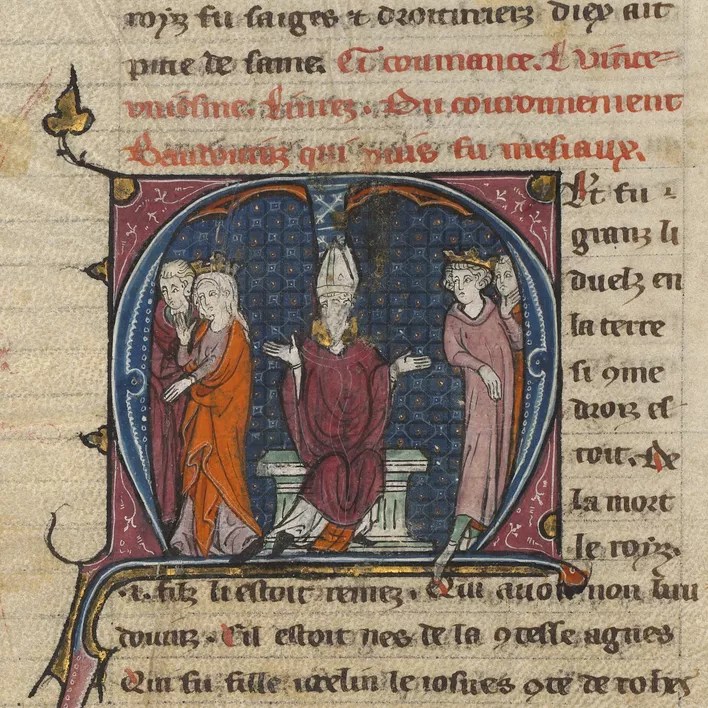 roys fu saiges & droituriers diex ait
pitie de same. Ci coumance. li vinte-
uniesme. liurez. Du couronnement
Baudouin qui puis fu mesiaux.
M lt fu
granz li
duelz en
la terre
si 9me
droiz es
toit. De
la mort
le roys.
.i. filz li estoit remez. Qui auoit non bau
douin. Cil estoit nes de la 9tesse agnes
Qui fu fille iocelin le iosnes 9te de rohes